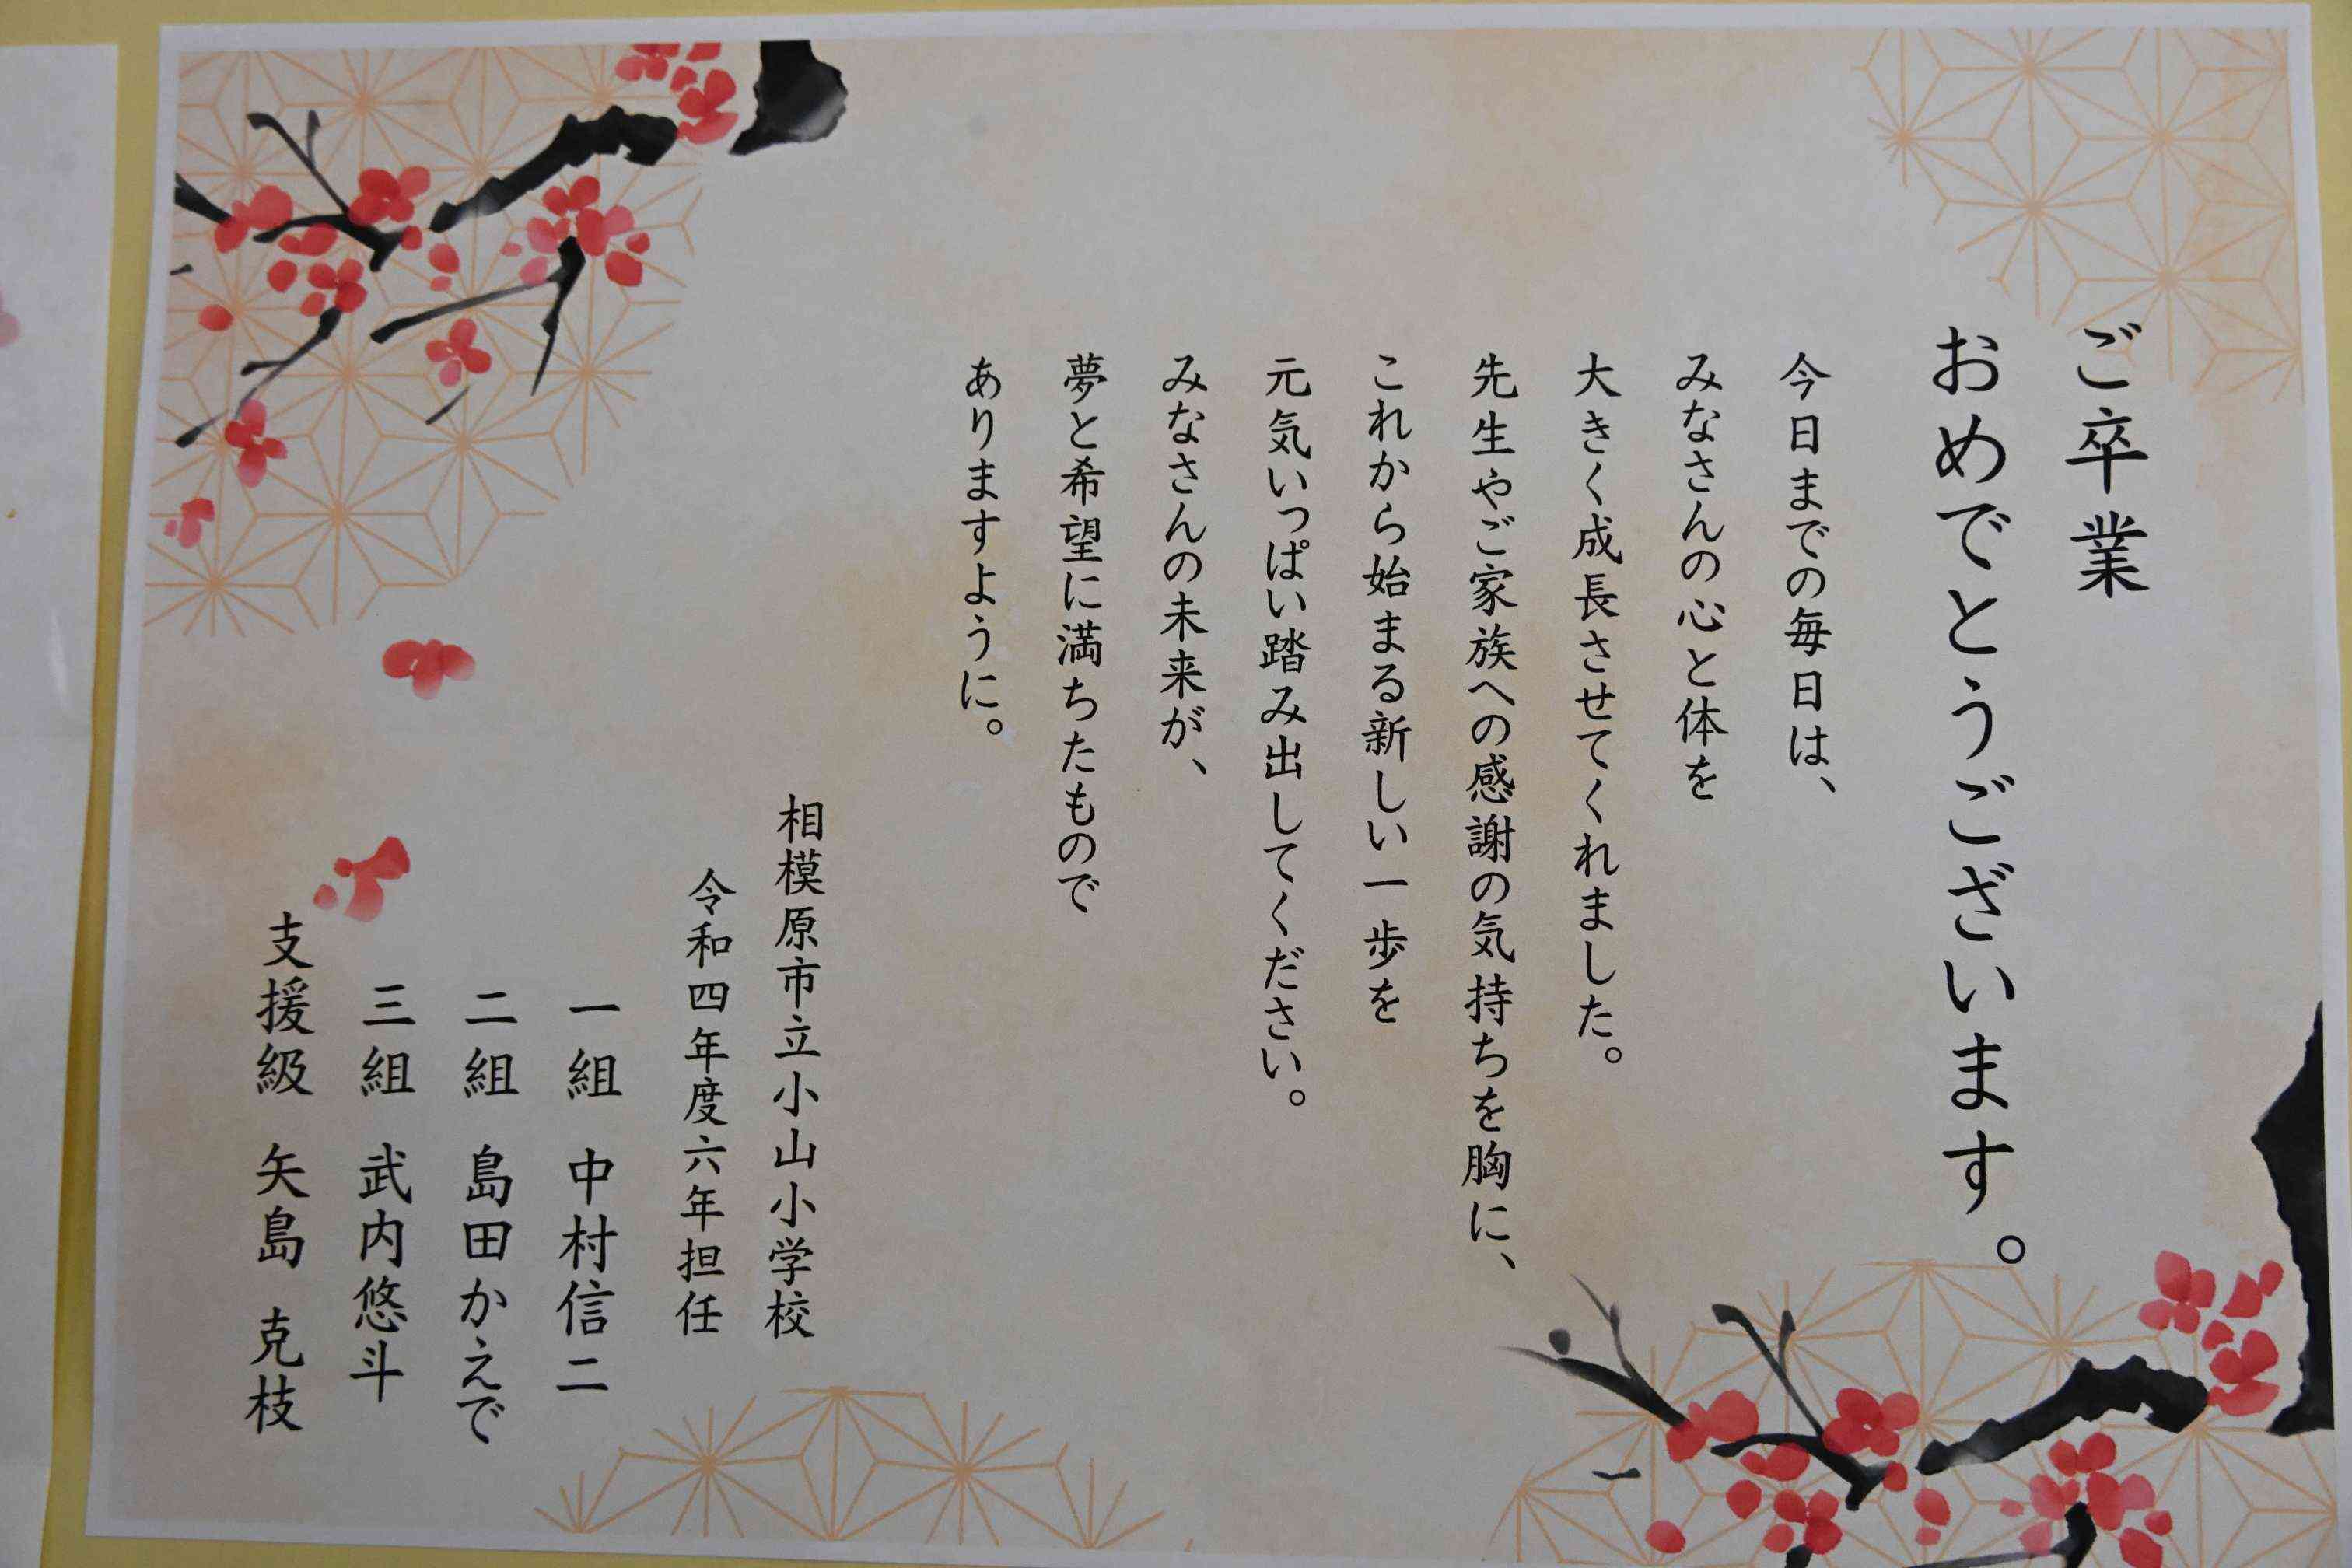 ご卒業
おめでとうございます。
今日までの毎日は、
みなさんの心と体を
大きく成長させてくれました。
先生やご家族への感謝の気持ちを胸に、
これから始まる新しい一歩を
元気いっぱい踏み出してください。
みなさんの未来が、
夢と希望に満ちたもので
ありますように。
相模原市立小山小学校
令和四年度六年担任
一組 中村信二
二組 島田かえで
三組 武内悠斗
支援級 矢島 克枝